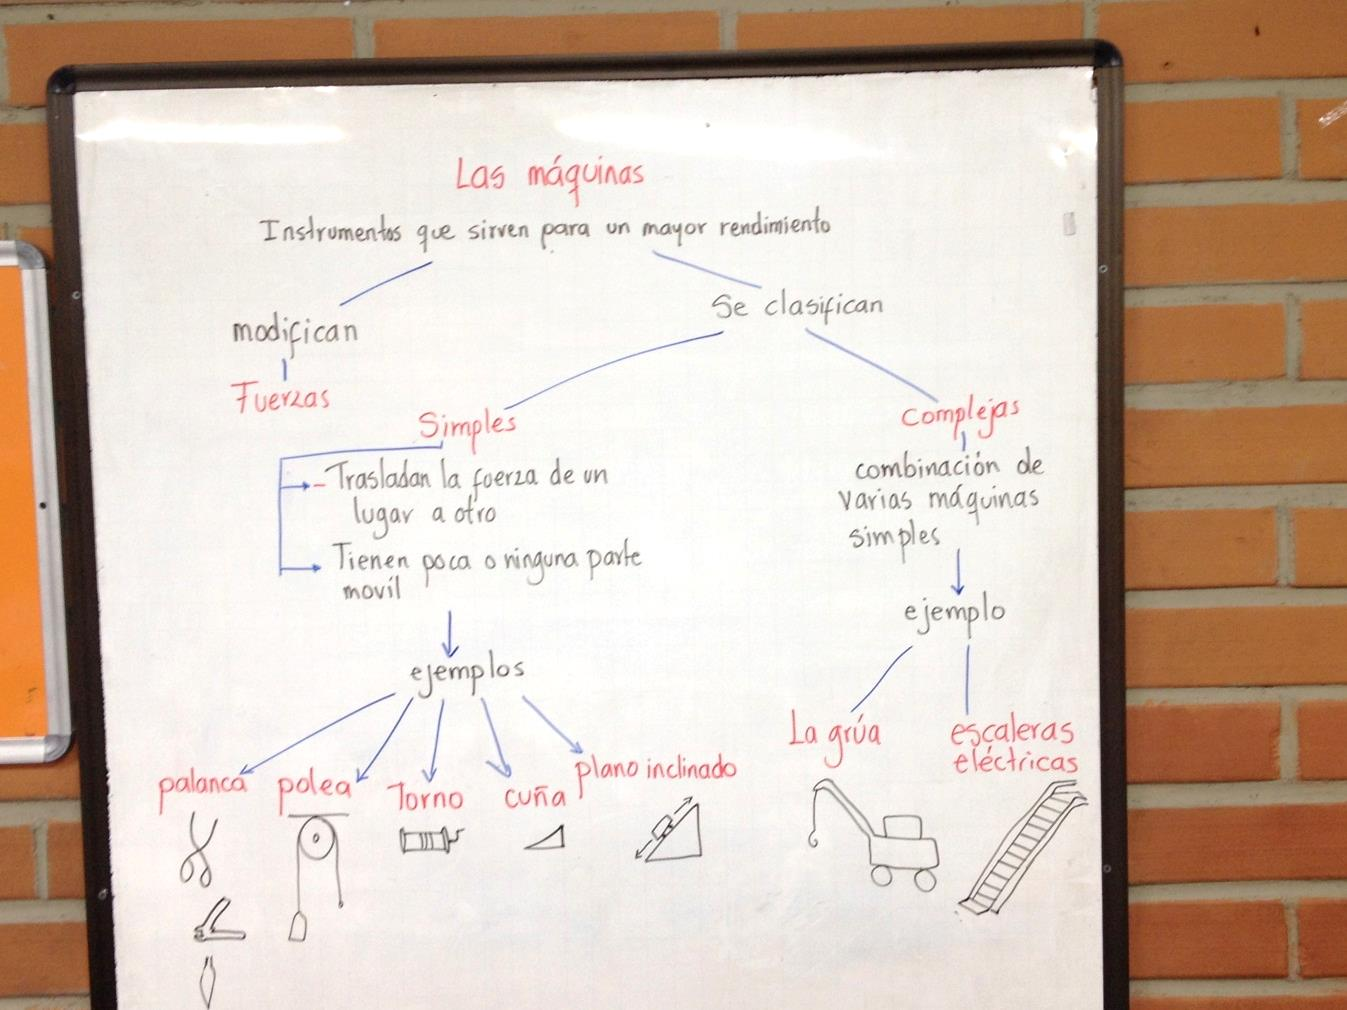 Las máquinas
Instrumentos que sirven para un mayor rendimiento
modifican
Fuerzas
Se clasifican
Simples
- Trasladan la fuerza de un
lugar a otro
Tienen poca o ninguna parte
movíl
ejemplos
palanca
polea
Torno
cuña
plano inclinado
Complejas
combinación de
varias máquinas
simples
ejemplo
La grúa
escaleras
eléctricas